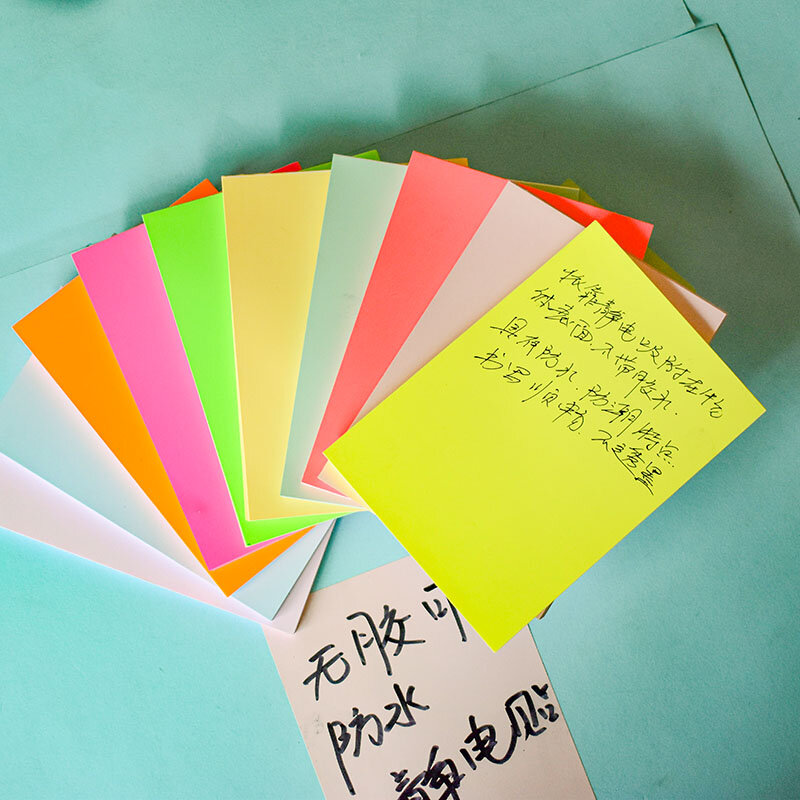 依靠静电吸附在
体表面.不带胶水.
具有防水.防潮特点.
书写顺 不透墨
无胶
防水
静电贴